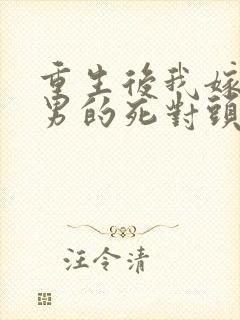 重生後我嫁
男的死對頭
汪令清